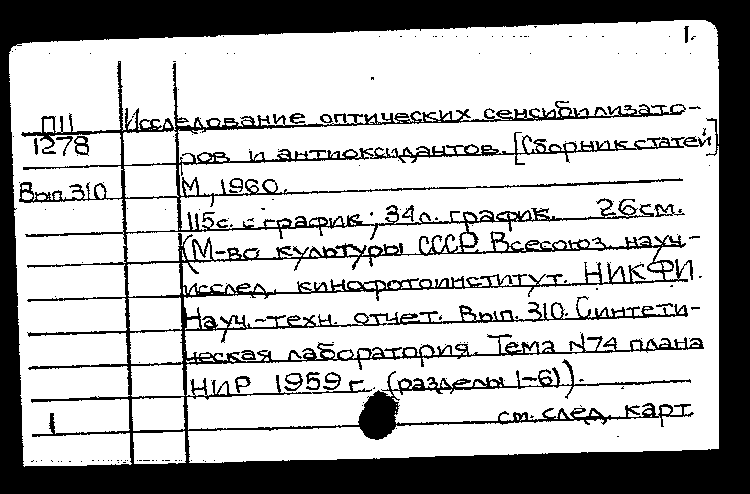 1.
П11 Исследование оптических сенсибилизато-
1278 ров и антиоксидантов. [Сборник статей]
Вып. 310 М., 1960.
115с. с график; 34л. график. 26см.
(М-во культуры СССР. Всесоюз. науч.-
исслед. кинофотоинститут. НИКФИ.
Науч.-техн. отчет. Вып. 310. Синтети-
ческая лаборатория. Тема N74 плана
НИР 1959 г. (разделы 1-6)).
1 см. след. карт.